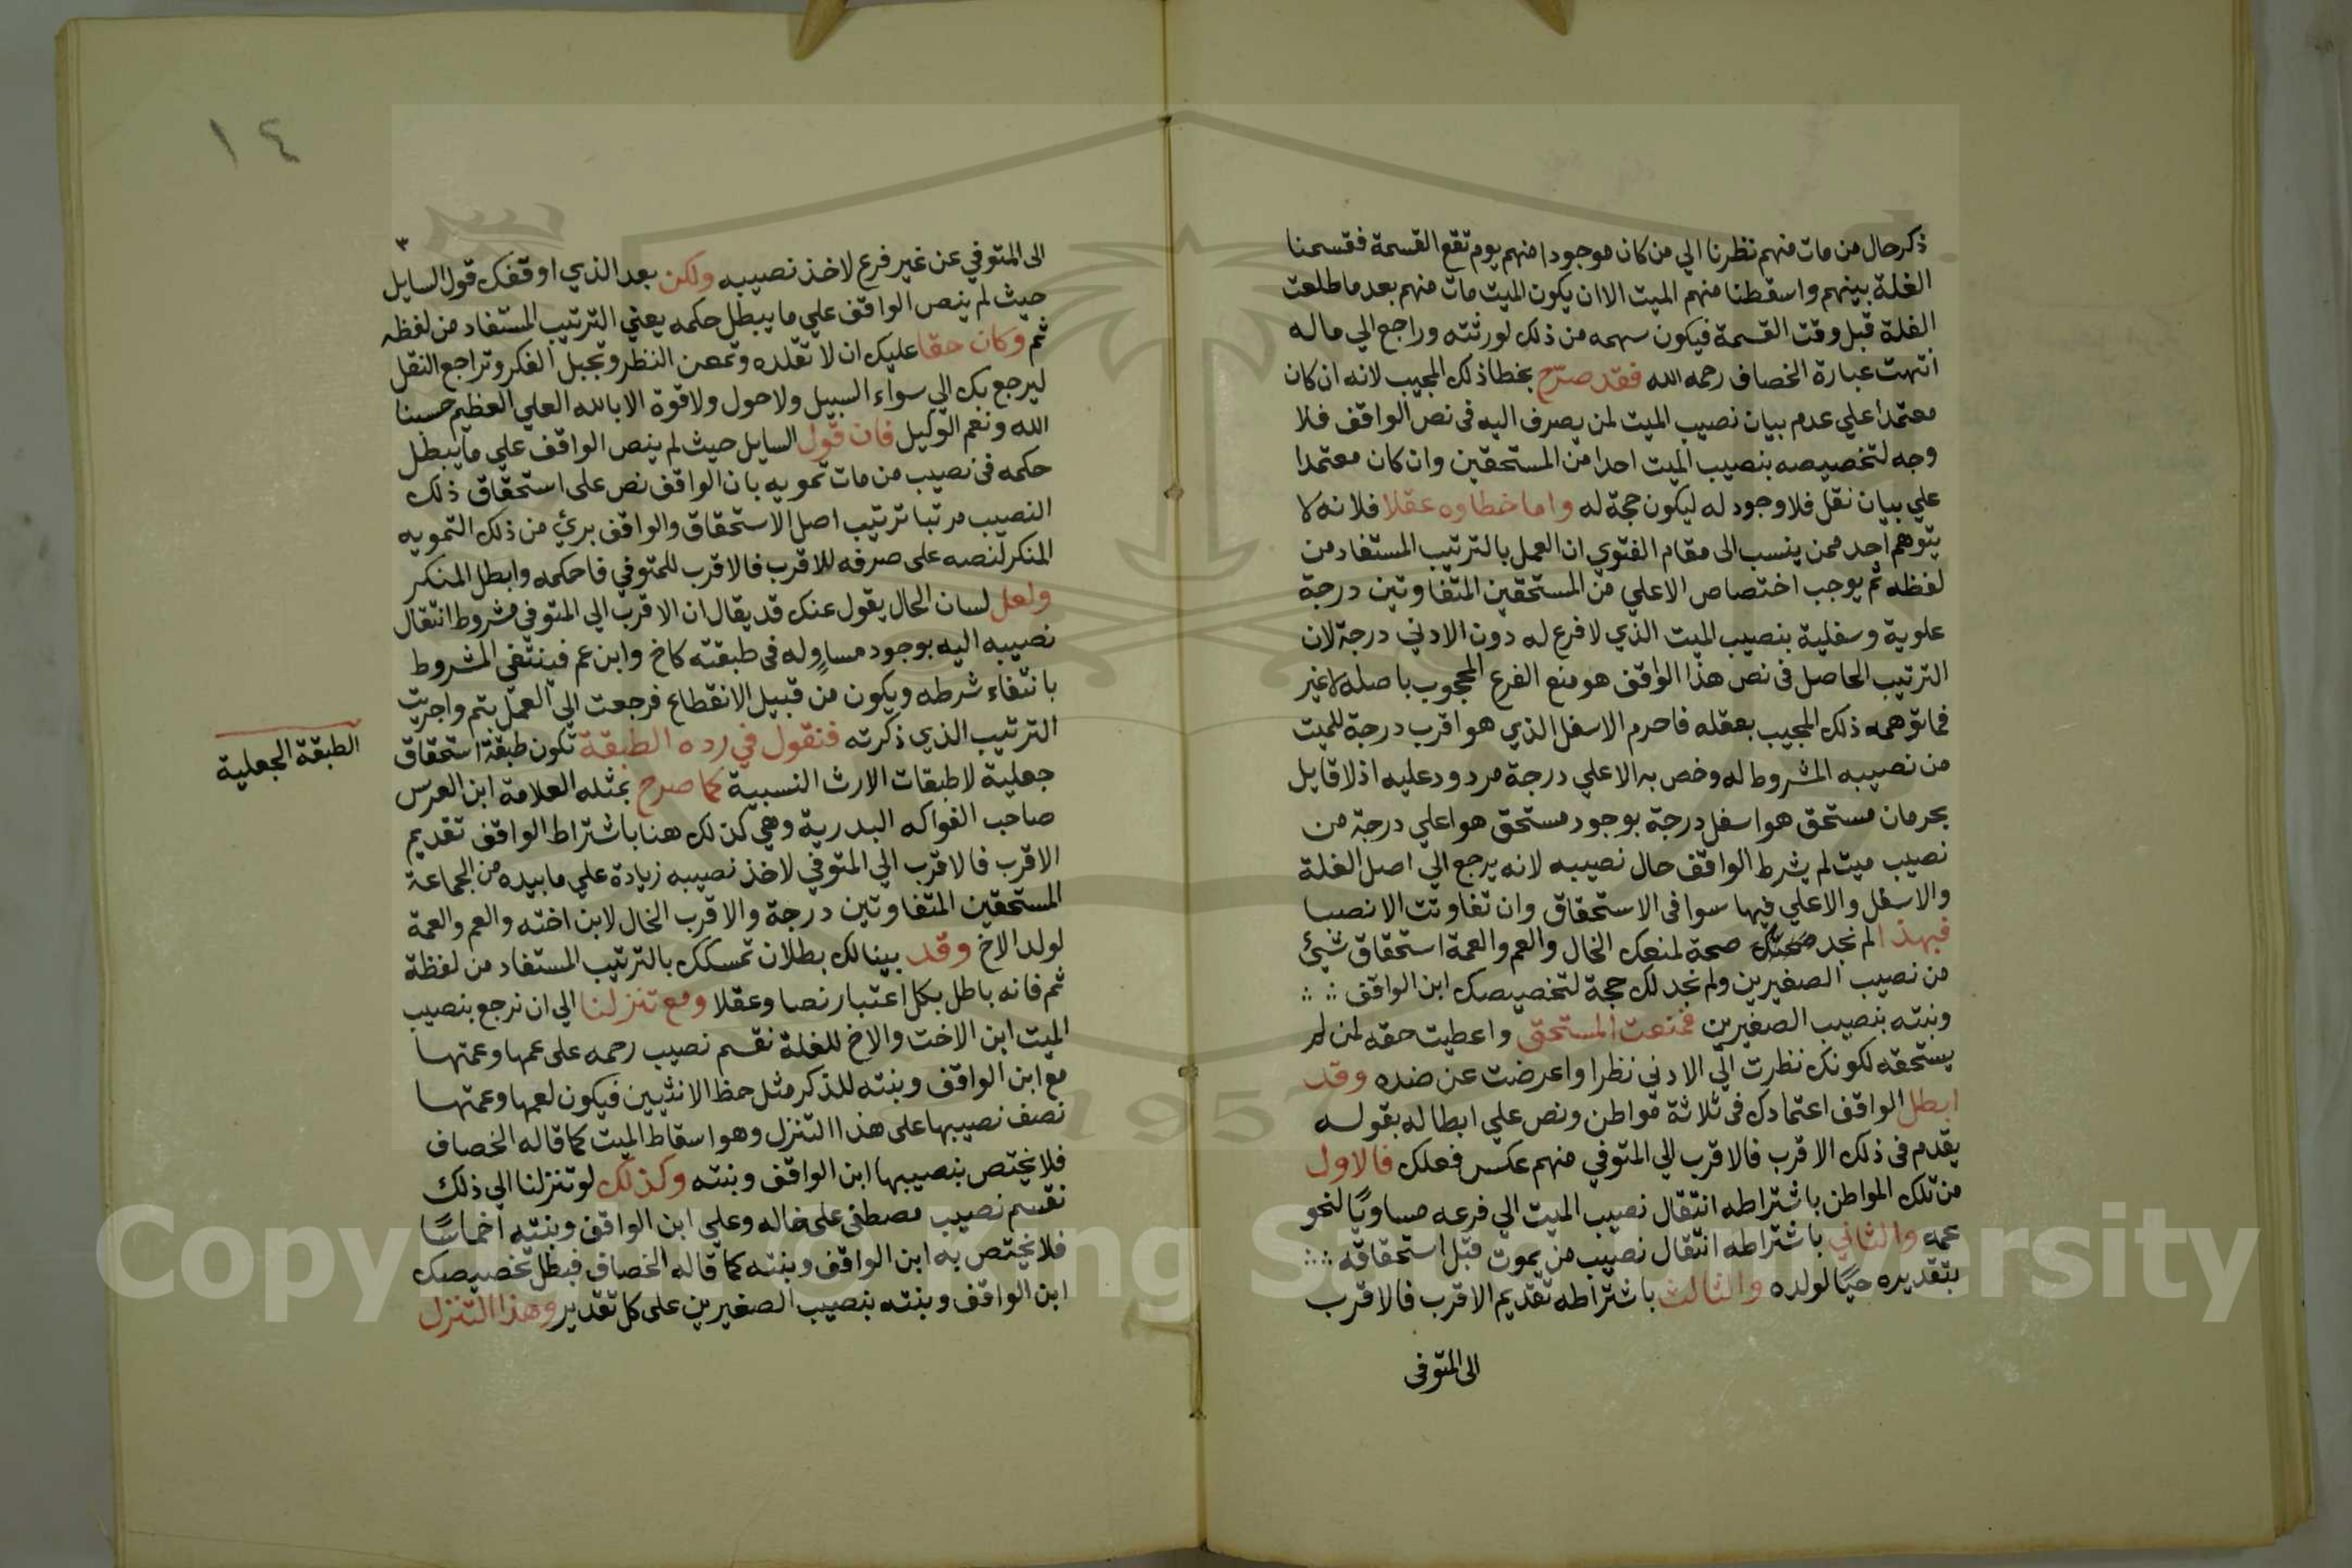 ذكر حال من مات منهم نظرنا الي من كان موجودا منهم يوم تقع القسمة فقسمنا
الغلة بينهم واسقطنا منهم الميت الا ان يكون الميت مات منهم بعد ما طلعت
الغلة قبل وقت القسمة فيكون سهمه من ذلك لورثته وراجع الي ماله
انتهت عبارة الخصاف رحمه الله فقد صرّح بخطا ذلك المجيب لانه ان كان
معتمدا علي عدم بيان نصيب الميت لمن يصرف اليه فى نص الواقف فلا
وجه لتخصيصه بنصيب الميت احدا من المستحقين وان كان معتمدا
علي بيان نقل فلا وجود له ليكون حجة له واما خطاوه عقلا فلانه لا
يتوهم احد ممن ينسب الى مقام الفتوي ان العمل بالترتيب المستفاد من
لفظه ثم يوجب اختصاص الاعلي من المستحقين المتفاوتين درجة
علوية وسفلية بنصيب الميت الذي لا فرع له دون الادني درجة لان
الترتيب الحاصل فى نص هذا الواقف هو منع الفرع المحجوب باصله لا غير
فما توهمه ذلك المجيب بعقله فاحرم الاسفل الذي هو اقرب درجة للميت
من نصيبه المشروط له وخص به الاعلي درجة مردود عليه اذ لا قايل
بحرمان مستحق هو اسفل درجة بوجود مستحق هو اعلي درجة من
نصيب ميت لم يشرط الواقف حال نصيبه لانه يرجع الي اصل الغلة
والاسفل والاعلي فيها سوا فى الاستحقاق وان تفاوتت الانصبا
فبهذا لم نجد صحة لمنعك الخال والعم والعمة استحقاق شيئ
من نصيب الصغيرين ولم نجد لك حجة لتخصيصك ابن الواقف
وبنته بنصيب الصغيرين فمنعت المستحق واعطيت حقه لمن لم
يستحقه لكونك نظرت الي الادني نظرا واعرضت عن ضده وقد
ابطل الواقف اعتمادك فى ثلاثة مواطن ونص علي ابطاله بقوله
يقدم فى ذلك الاقرب فالاقرب الي المتوفي منهم عكس فعلك فالاول
من تلك المواطن باشتراطه انتقال نصيب الميت الي فرعه مساويًا لنحو
عمه والثاني باشتراطه انتقال نصيب من يموت قبل استحقاقه
بتقديره حيًا لولده والثالث باشتراطه تقديم الاقرب فالاقرب
الى المتوفى
١٤
٣
الى المتوفي عن غير فرع لاخذ نصيبه ولكن بعد الذي اوقفك قول السايل
حيث لم ينص الواقف علي ما يبطل حكمه يعني الترتيب المستفاد من لفظه
ثم وكان حقا عليك ان لا تقلده وتمعن النظر وتجيل الفكر وتراجع النقل
ليرجع بك الي سواء السبيل ولا حول ولا قوة الا بالله العلي العظيم حسبنا
الله ونعم الوكيل فان قول السايل حيث لم ينص الواقف علي ما يبطل
حكمه فى نصيب من مات تمويه بان الواقف نص على استحقاق ذلك
النصيب مرتبا ترتيب اصل الاستحقاق والواقف برئ من ذلك التمويه
المنكر لنصه على صرفه للاقرب فالاقرب للمتوفي فاحكمه وابطل المنكر
ولعل لسان الحال يقول عنك قد يقال ان الاقرب الي المتوفي مشروط انتقال
نصيبه اليه بوجود مساوٍ له فى طبقته كاخ وابن عم فينتفى المشروط
بانتفاء شرطه ويكون من قبيل الانقطاع فرجعت الى العمل بثم واجريت
الترتيب الذي ذكرته فنقول في رده الطبقة تكون طبقة استحقاق
جعلية لا طبقات الارث النسبية كما صرح بمثله العلامة ابن الغرس
صاحب الفواكه البدرية وهي كذلك هنا باشتراط الواقف تقديم
الاقرب فالاقرب الي المتوفي لاخذ نصيبه زيادة علي ما بيده من الجماعة
المستحقين المتفاوتين درجة والاقرب الخال لابن اخته والعم والعمة
لولد الاخ وقد بينا لك بطلان تمسكك بالترتيب المستفاد من لفظة
ثم فانه باطل بكل اعتبار نصا وعقلا ومع تنزلنا الي ان نرجع بنصيب
الميت ابن الاخت والاخ للغلة نقسم نصيب رحمه على عمها وعمتها
مع ابن الواقف وبنته للذكر مثل حظ الانثيين فيكون لعمها وعمتها
نصف نصيبها على هذا التنزل وهو اسقاط الميت كما قاله الخصاف
فلا يختص بنصيبها ابن الواقف وبنته وكذلك لو تنزلنا الي ذلك
نقسم نصيب مصطفى على خاله وعلي ابن الواقف وبنته اخماسًا
فلا يختص به ابن الواقف وبنته كما قاله الخصاف فبطل تخصيصك
ابن الواقف وبنته بنصيب الصغيرين على كل تقدير وهذا التنزل
الطبقة الجعلية
1957
Copyright © King Saud University